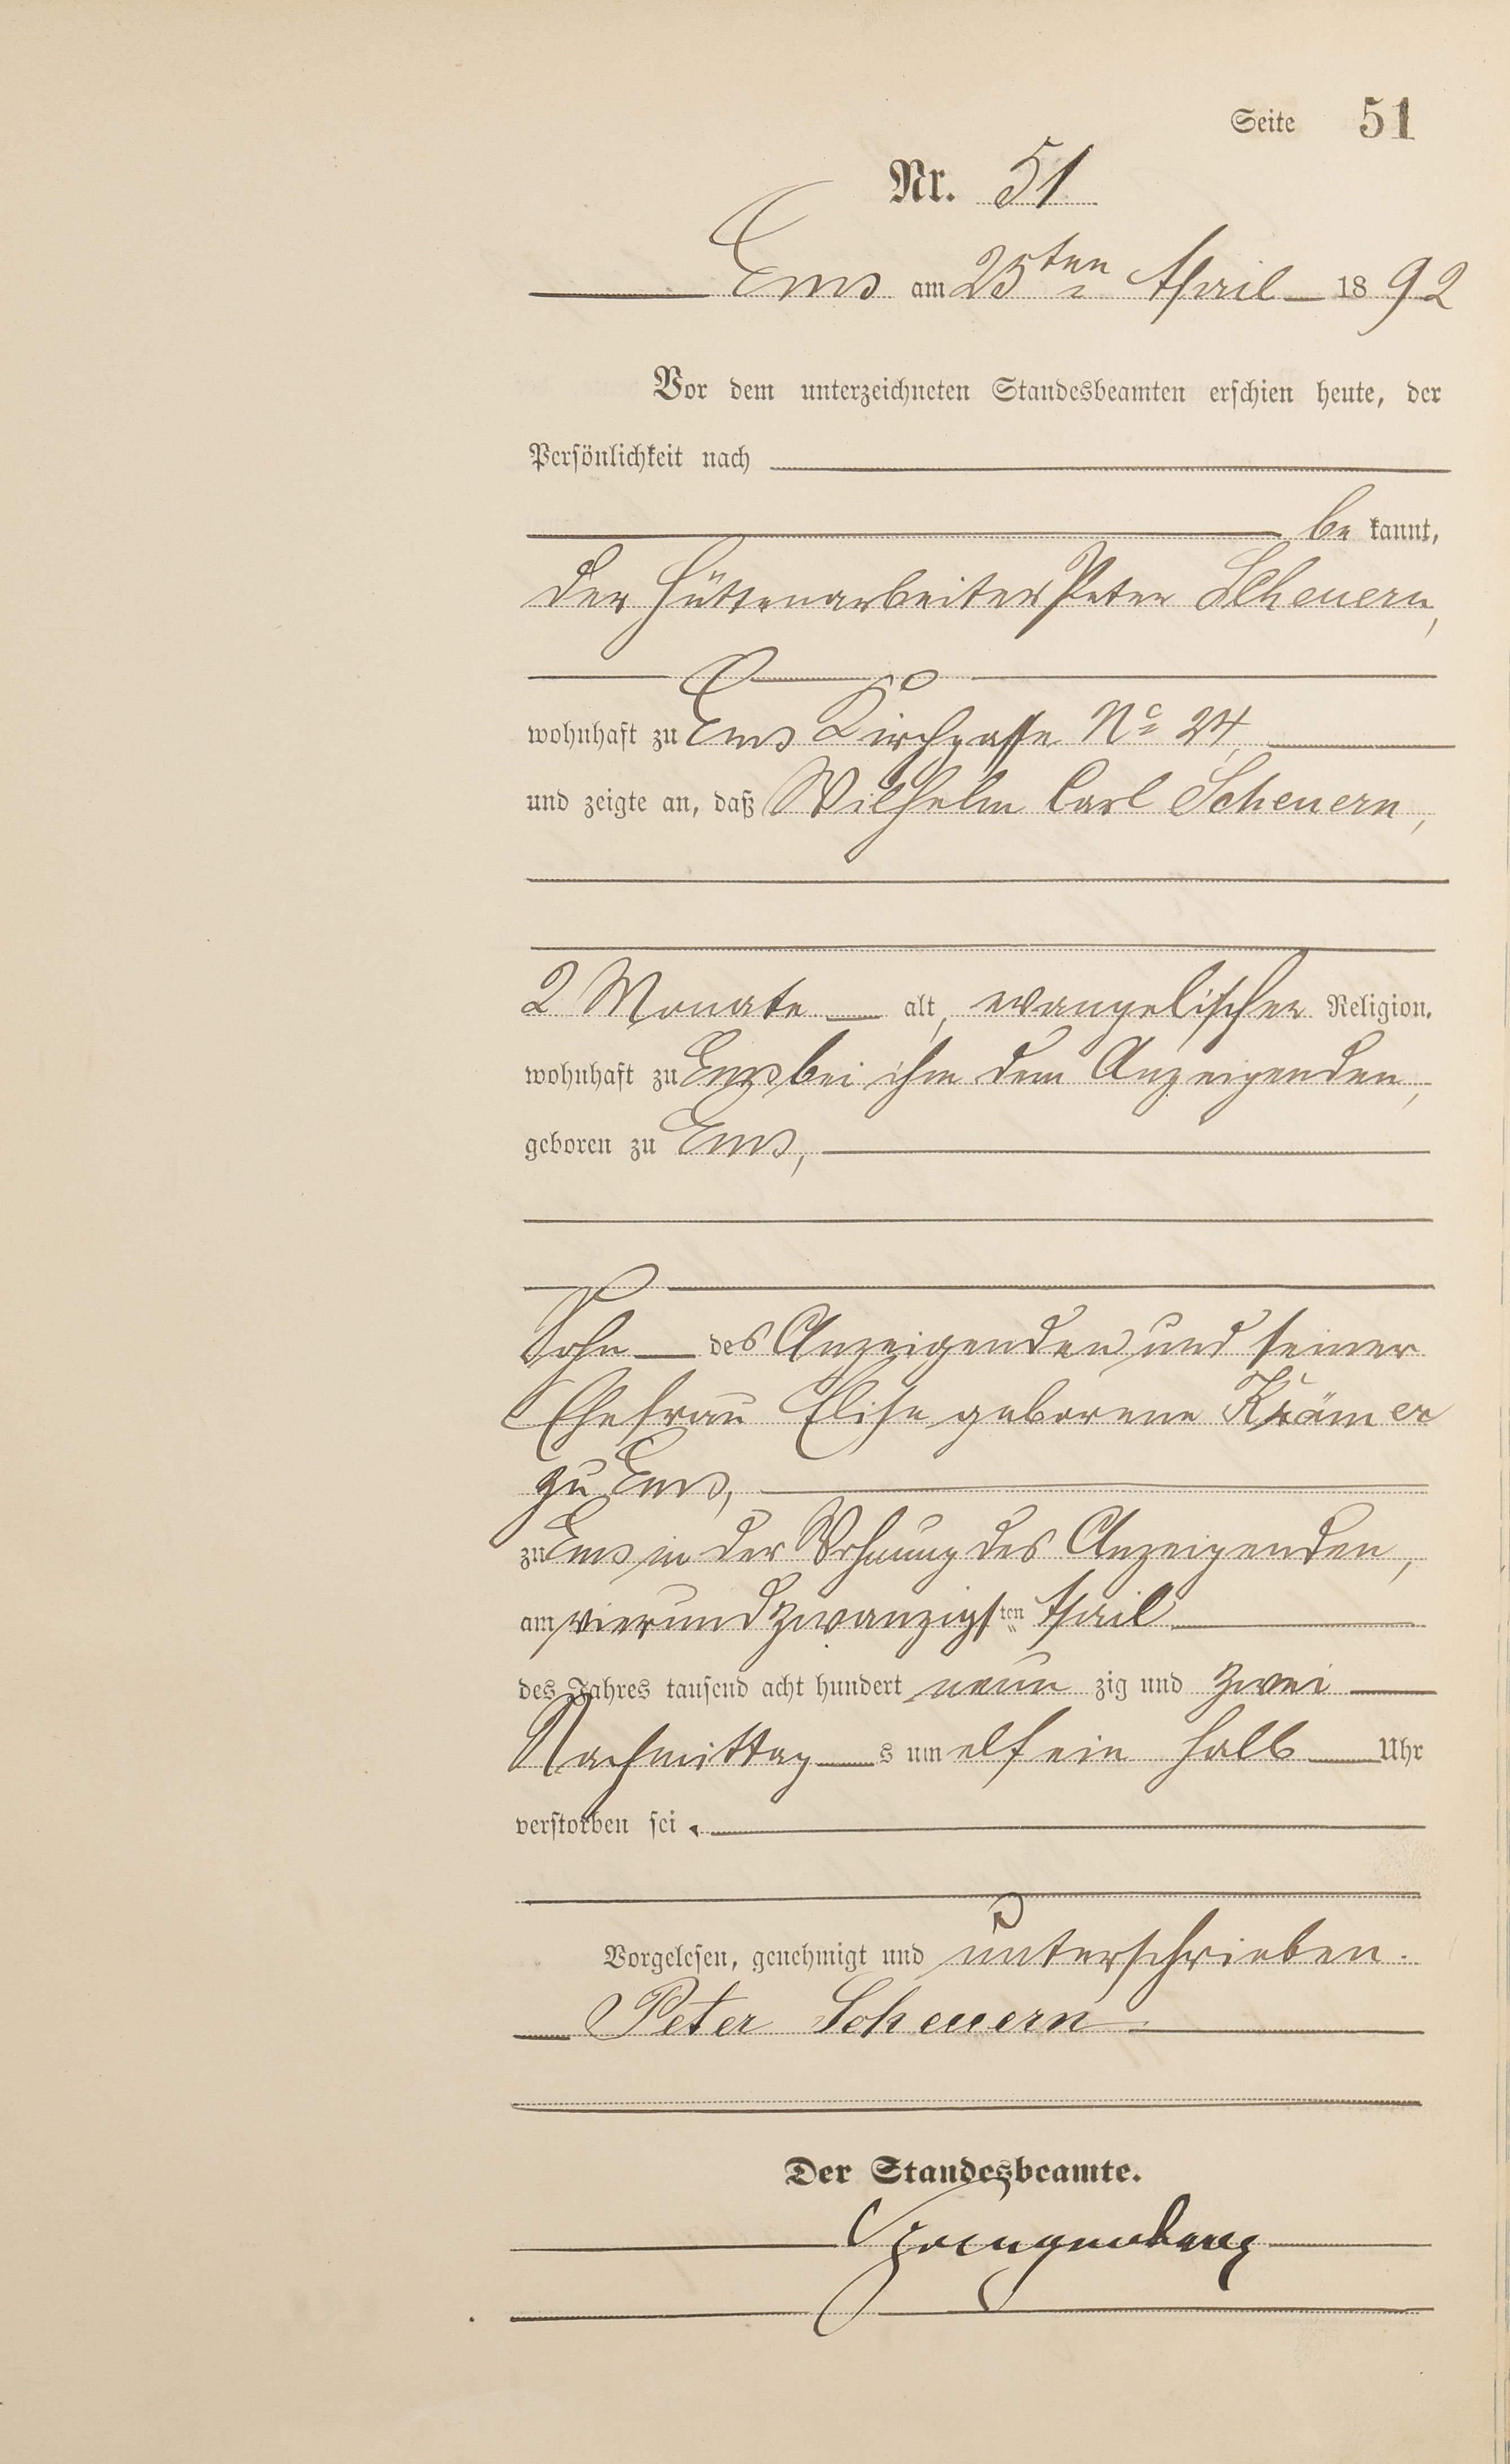 Seite 51
Nr. 51
Ems am 25ten April 1892
Vor dem unterzeichneten Standesbeamten erschien heute, der
Persönlichkeit nach
be kannt,
der Hüttenarbeiter Peter Scheuern,
wohnhaft zu Ems Kirchgasse No 24,
und zeigte an, daß Wilhelm Carl Scheuern,
2 Monate alt, evangelischer Religion,
wohnhaft zu Ems bei ihm dem Anzeigenden,
geboren zu Ems,
Sohn des Anzeigenden und seiner
Ehefrau Elise geborene Krämer
zu Ems,
zu Ems in der Wohnung des Anzeigenden,
am vierundzwanzigsten April
des Jahres tausend acht hundert neun zig und zwei
Nachmittag s um elf ein halb Uhr
verstorben sei.
Vorgelesen, genehmigt und unterschrieben.
Peter Scheuern
Der Standesbeamte.